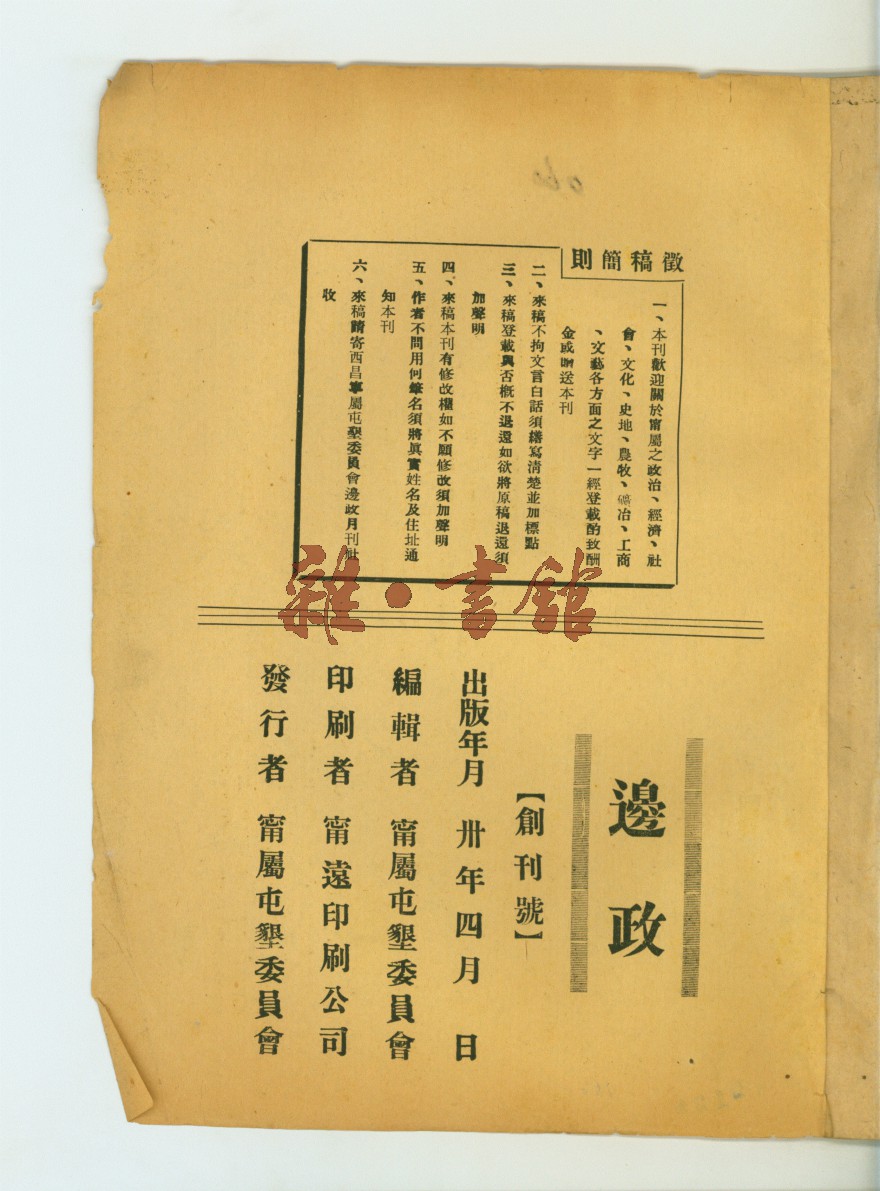 徵稿簡則
一、本刊歡迎關於甯屬之政治、經濟、社
會、文化、史地、農牧、礦冶、工商
、文藝各方面之文字一經登載酌致酬
金或贈送本刊
二、來稿不拘文言白話須繕寫清楚並加標點
三、來稿登載與否概不退還如欲將原稿退還須
加聲明
四、來稿本刊有修改權如不願修改須加聲明
五、作者不問用何筆名須將眞實姓名及住址通
知本刊
六、來稿請寄西昌寧屬屯墾委員會邊政月刊社
收
雜·書館
邊政
【創刊號】
出版年月 卅年四月 日
編輯者 甯屬屯墾委員會
印刷者 甯遠印刷公司
發行者 甯屬屯墾委員會